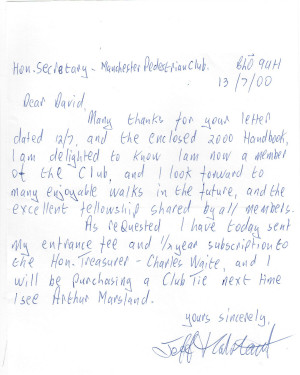 Hon. Secretary - Manchester Pedestrian Club. BL0 9UH
13/7/00
Dear David,
Many thanks for your letter
dated 12/7, and the enclosed 2000 Handbook,
I am delighted to know I am now a member
of the Club, and I look forward to
many enjoyable walks in the future, and the
excellent fellowship shared by all members.
As requested I have today sent
my entrance fee and 1/2 year subscription to
the Hon. Treasurer - Charles Waite, and I
will be purchasing a Club Tie next time
I see Arthur Marsland.
yours sincerely,
Jeff